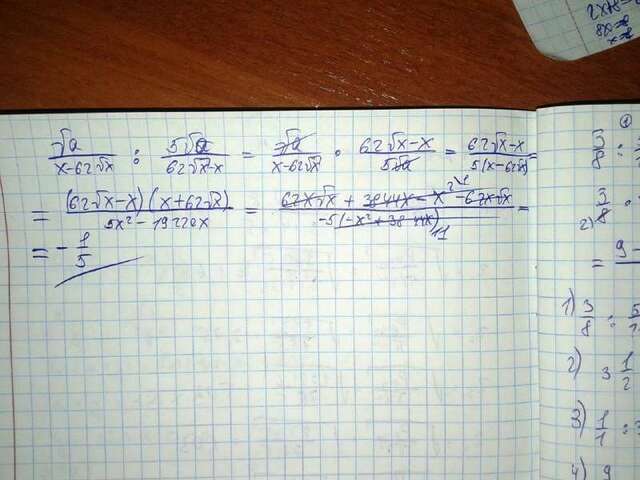 2x+8=
8x=8
x=8
√a/(x-62√x) : 5√a/(62√x-x) = √a/(x-62√x) · (62√x-x)/(5√a) = (62√x-x)/(5(x-62√x)) =
= (62√x-x)(x+62√x)/(5x²-19220x) = (62x√x + 3844x - x² - 62x√x)/(-5(-x²+3844x)) =
= - 1/5
①
3/8 :
3/8 ·
2)
= 9-
1) 3/8 : 5
2) 3 1/2
3) 1/1 : 3
4) 9